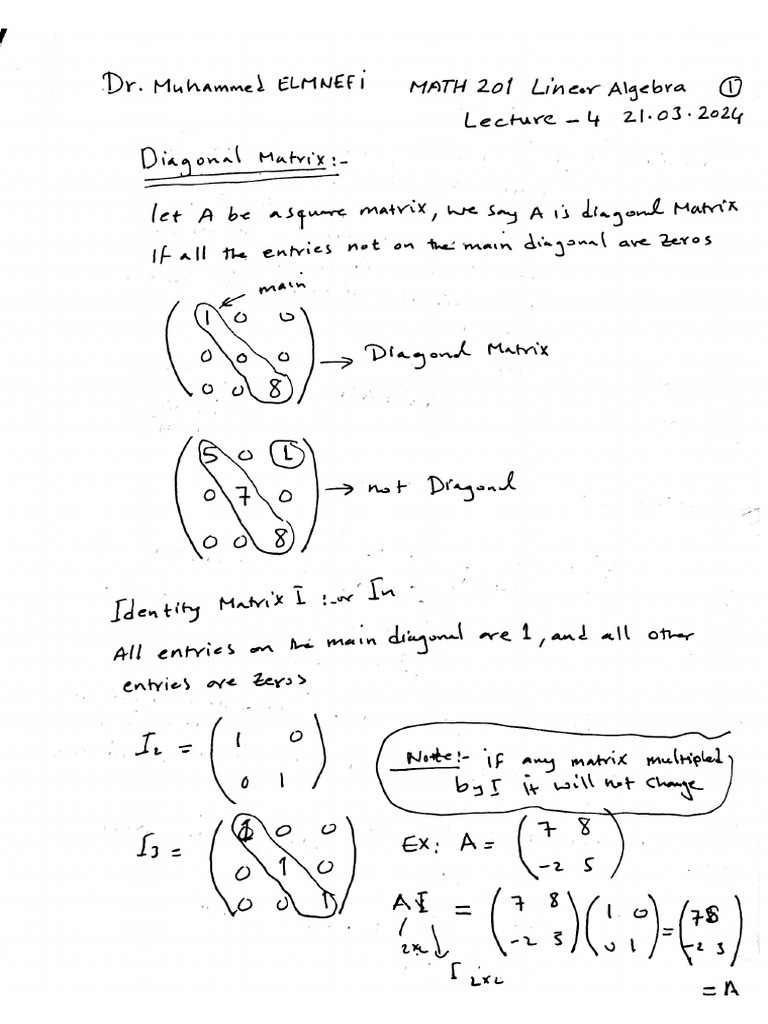 Dr. Muhammed ELMNEFi MATH 201 Linear Algebra ①
Lecture - 4 21.03.2024
Diagonal Matrix:-
let A be a square matrix, we say A is diagonal Matrix
If all the entries not on the main diagonal are zeros
main
1 0 0
0 0 0 → Diagonal Matrix
0 0 8
5 0 1
0 7 0 → not Diagonal
0 0 8
Identity Matrix I :- or In
All entries on the main diagonal are 1, and all other
entries are zeros
I₂ = (1 0
0 1)
Note:- if any matrix multipled
by I it will not change
I₃ = (1 0 0
0 1 0
0 0 1)
EX: A = (7 8
-2 5)
AI = (7 8 (1 0 = (7 8
-2 3) 0 1) -2 3)
2x2 I 2x2
= A